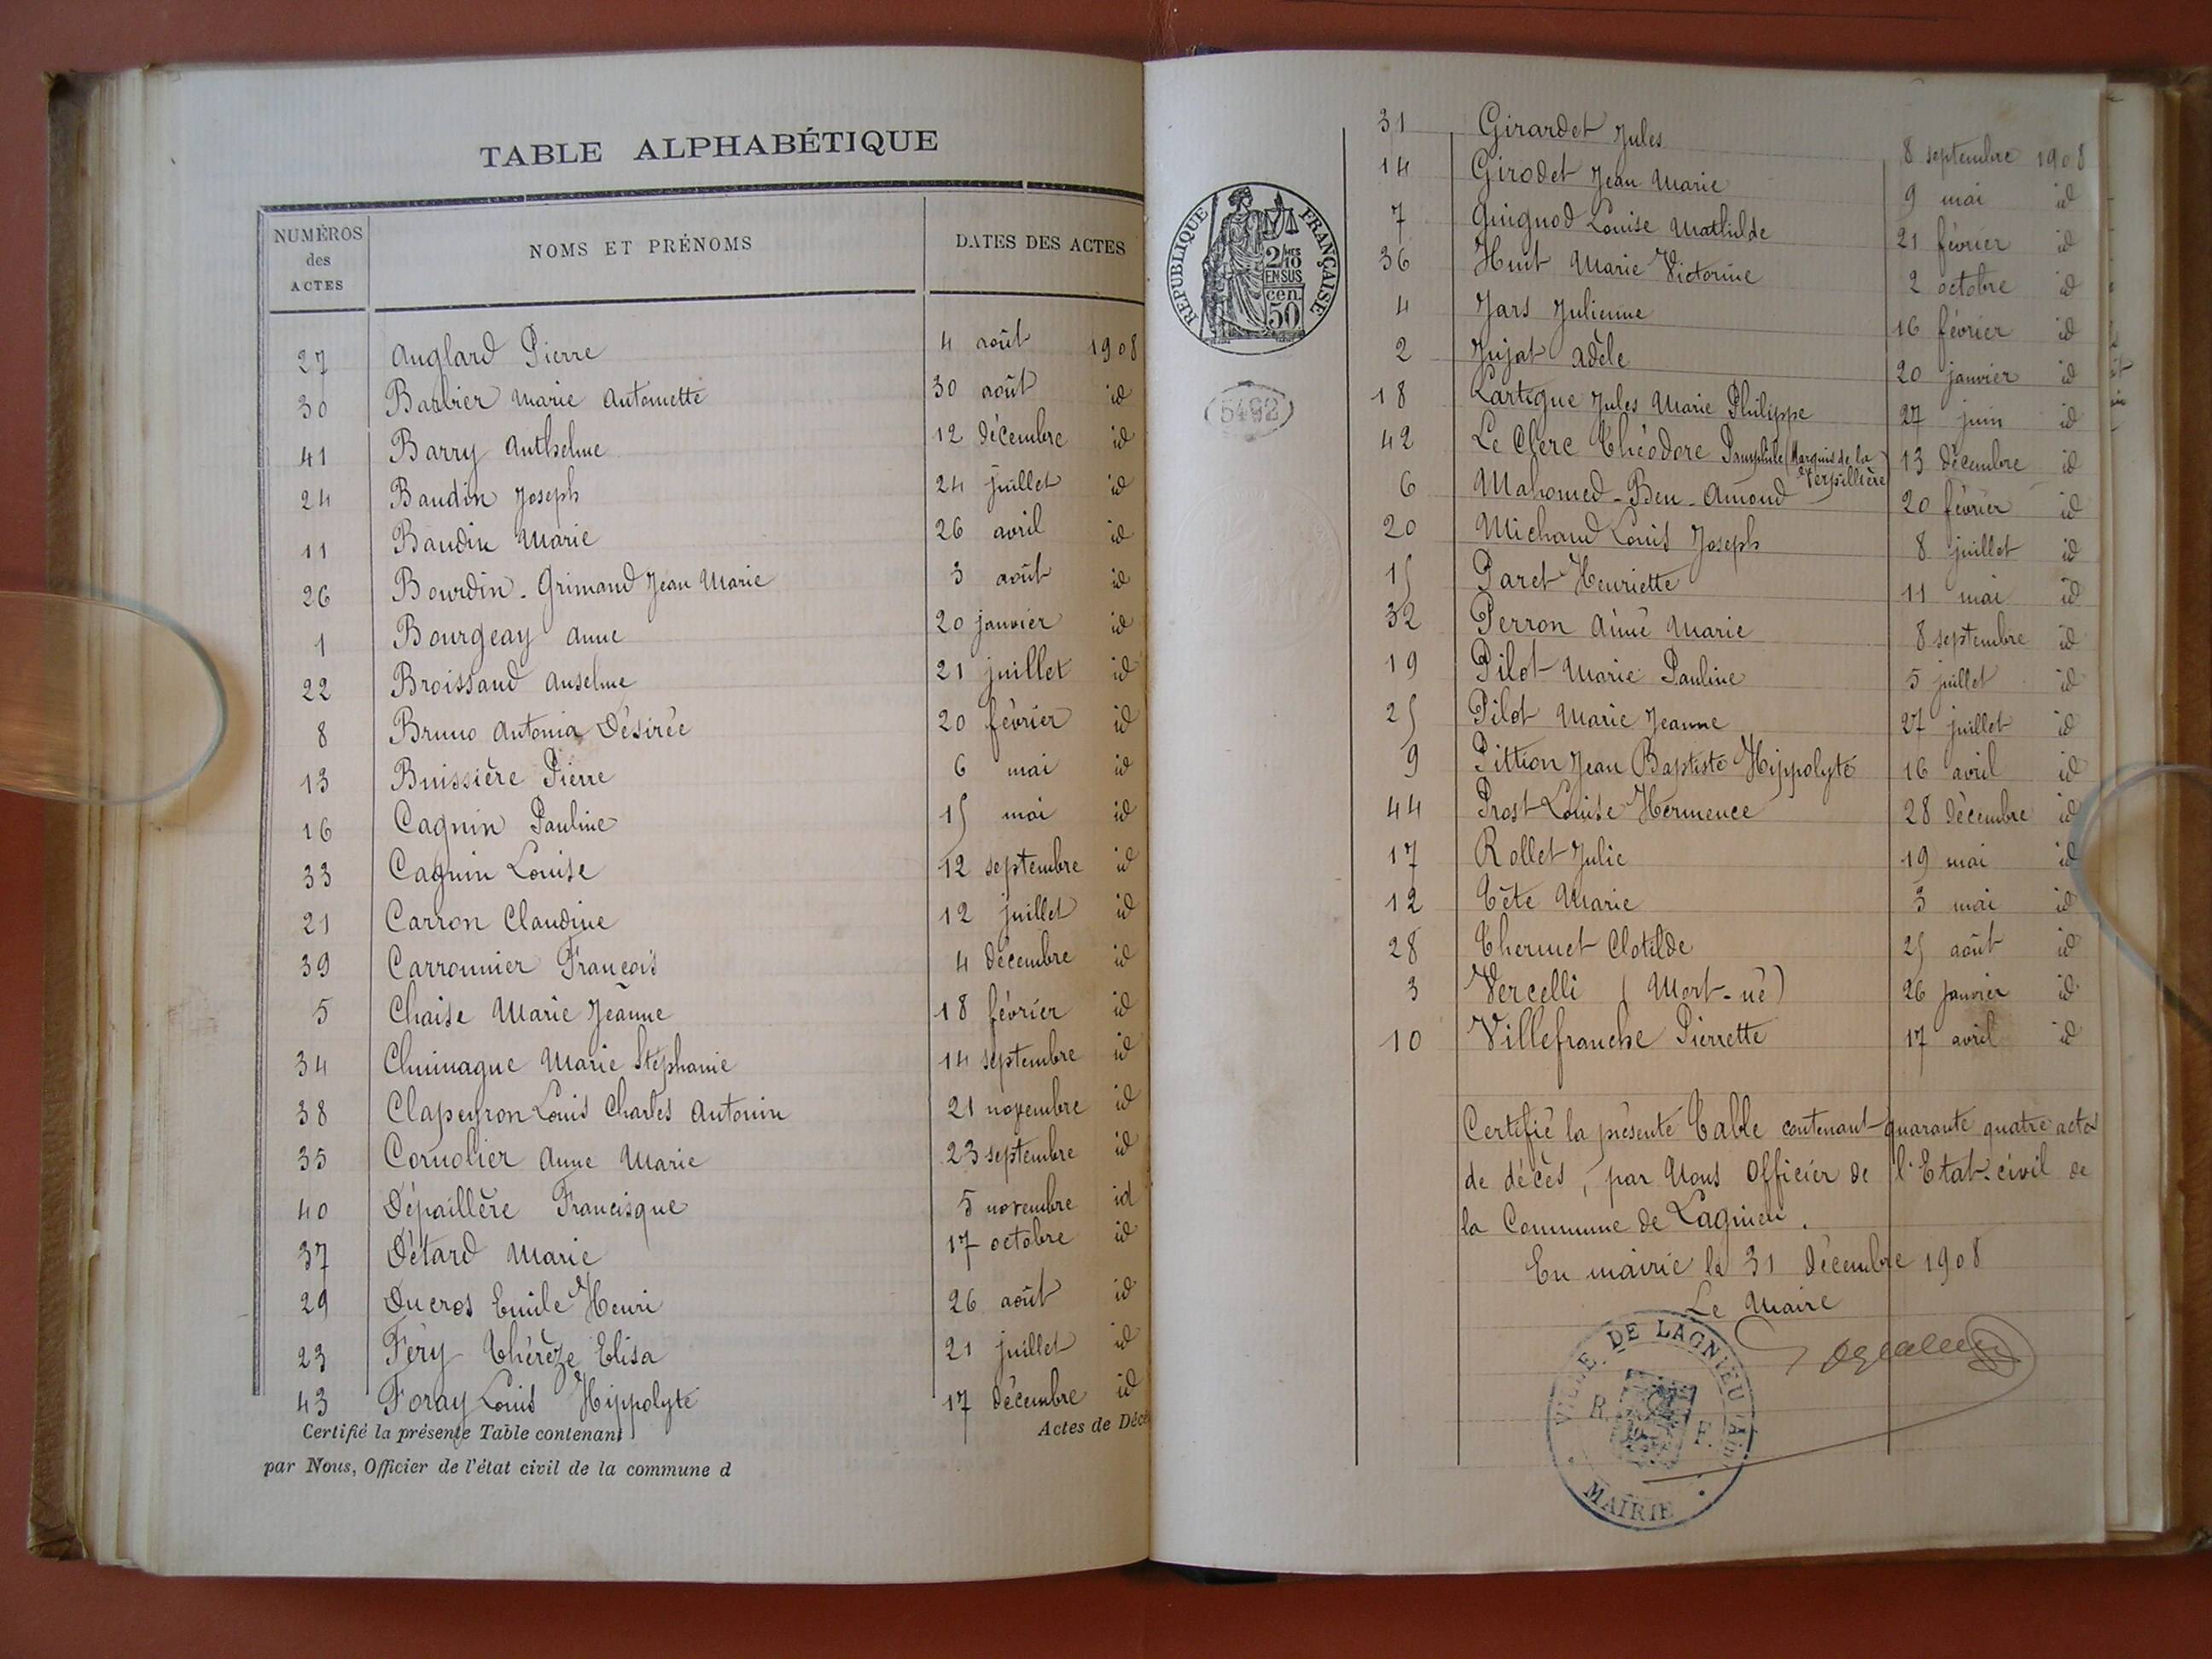 TABLE ALPHABÉTIQUE
NUMÉROS des ACTES NOMS ET PRÉNOMS DATES DES ACTES
27 Anglard Pierre 4 août 1908
30 Barbier Marie Antoinette 30 août id
41 Barry Anthelme 12 décembre id
24 Baudin Joseph 24 juillet id
11 Baudin Marie 26 avril id
26 Bourdin-Grimaud Jean Marie 3 août id
1 Bourgeay Anne 20 janvier id
22 Broissand Anselme 21 juillet id
8 Bruno Antonia Désirée 20 février id
13 Buissière Pierre 6 mai id
16 Cagnin Pauline 15 mai id
33 Cagnin Louise 12 septembre id
21 Carron Claudine 12 juillet id
39 Carronnier François 4 décembre id
5 Chaise Marie Jeanne 18 février id
34 Marie Stéphanie 14 septembre id
38 Clapeyron Louis Charles Antonin 21 novembre id
35 Cornolier Anne Marie 23 septembre id
40 Dépaillère Francisque 5 novembre id
37 Détard Marie 17 octobre id
29 Ducros Emile Henri 26 août id
23 Féry Thérèze Elisa 21 juillet id
43 Foray Louis Hippolyte 17 décembre id
Certifié la présente Table contenant Actes de Décè
par Nous, Officier de l'état civil de la commune d
RÉPUBLIQUE FRANÇAISE
2/10 MES
EN SUS
cen.
50
5492
31 Girardet Jules 8 septembre 1908
14 Girodet Jean Marie 9 mai id
7 Guignod Louise Mathilde 21 février id
36 Huit Marie Victorine 2 octobre id
4 Jars Julienne 16 février id
2 Jujat Adèle 20 janvier id
18 Lartigue Jules Marie Philippe 27 juin id
42 Le Clerc Théodore Pamphile (Marquis de la Verpillière) 13 décembre id
6 Mahomed-Ben-Amoud 20 février id
20 Michaud Louis Joseph 8 juillet id
15 Paret Henriette 11 mai id
32 Perron Aimé Marie 8 septembre id
19 Pilot Marie Pauline 5 juillet id
25 Pilot Marie Jeanne 27 juillet id
9 Pittion Jean Baptiste Hippolyte 16 avril id
44 Prost Louise Hermence 28 décembre id
17 Rollet Julie 19 mai id
12 Tête Marie 3 mai id
28 Thermet Clotilde 25 août id
3 Vercelli (Mort-né) 26 janvier id
10 Villefranche Pierrette 17 avril id
Certifié la présente Table contenant quarante quatre actes
de décès, par Nous Officier de l'Etat-civil de
la Commune de Lagnieu.
En mairie le 31 décembre 1908
Le Maire
VILLE DE LAGNIEU (AIN)
R. F.
MAIRIE